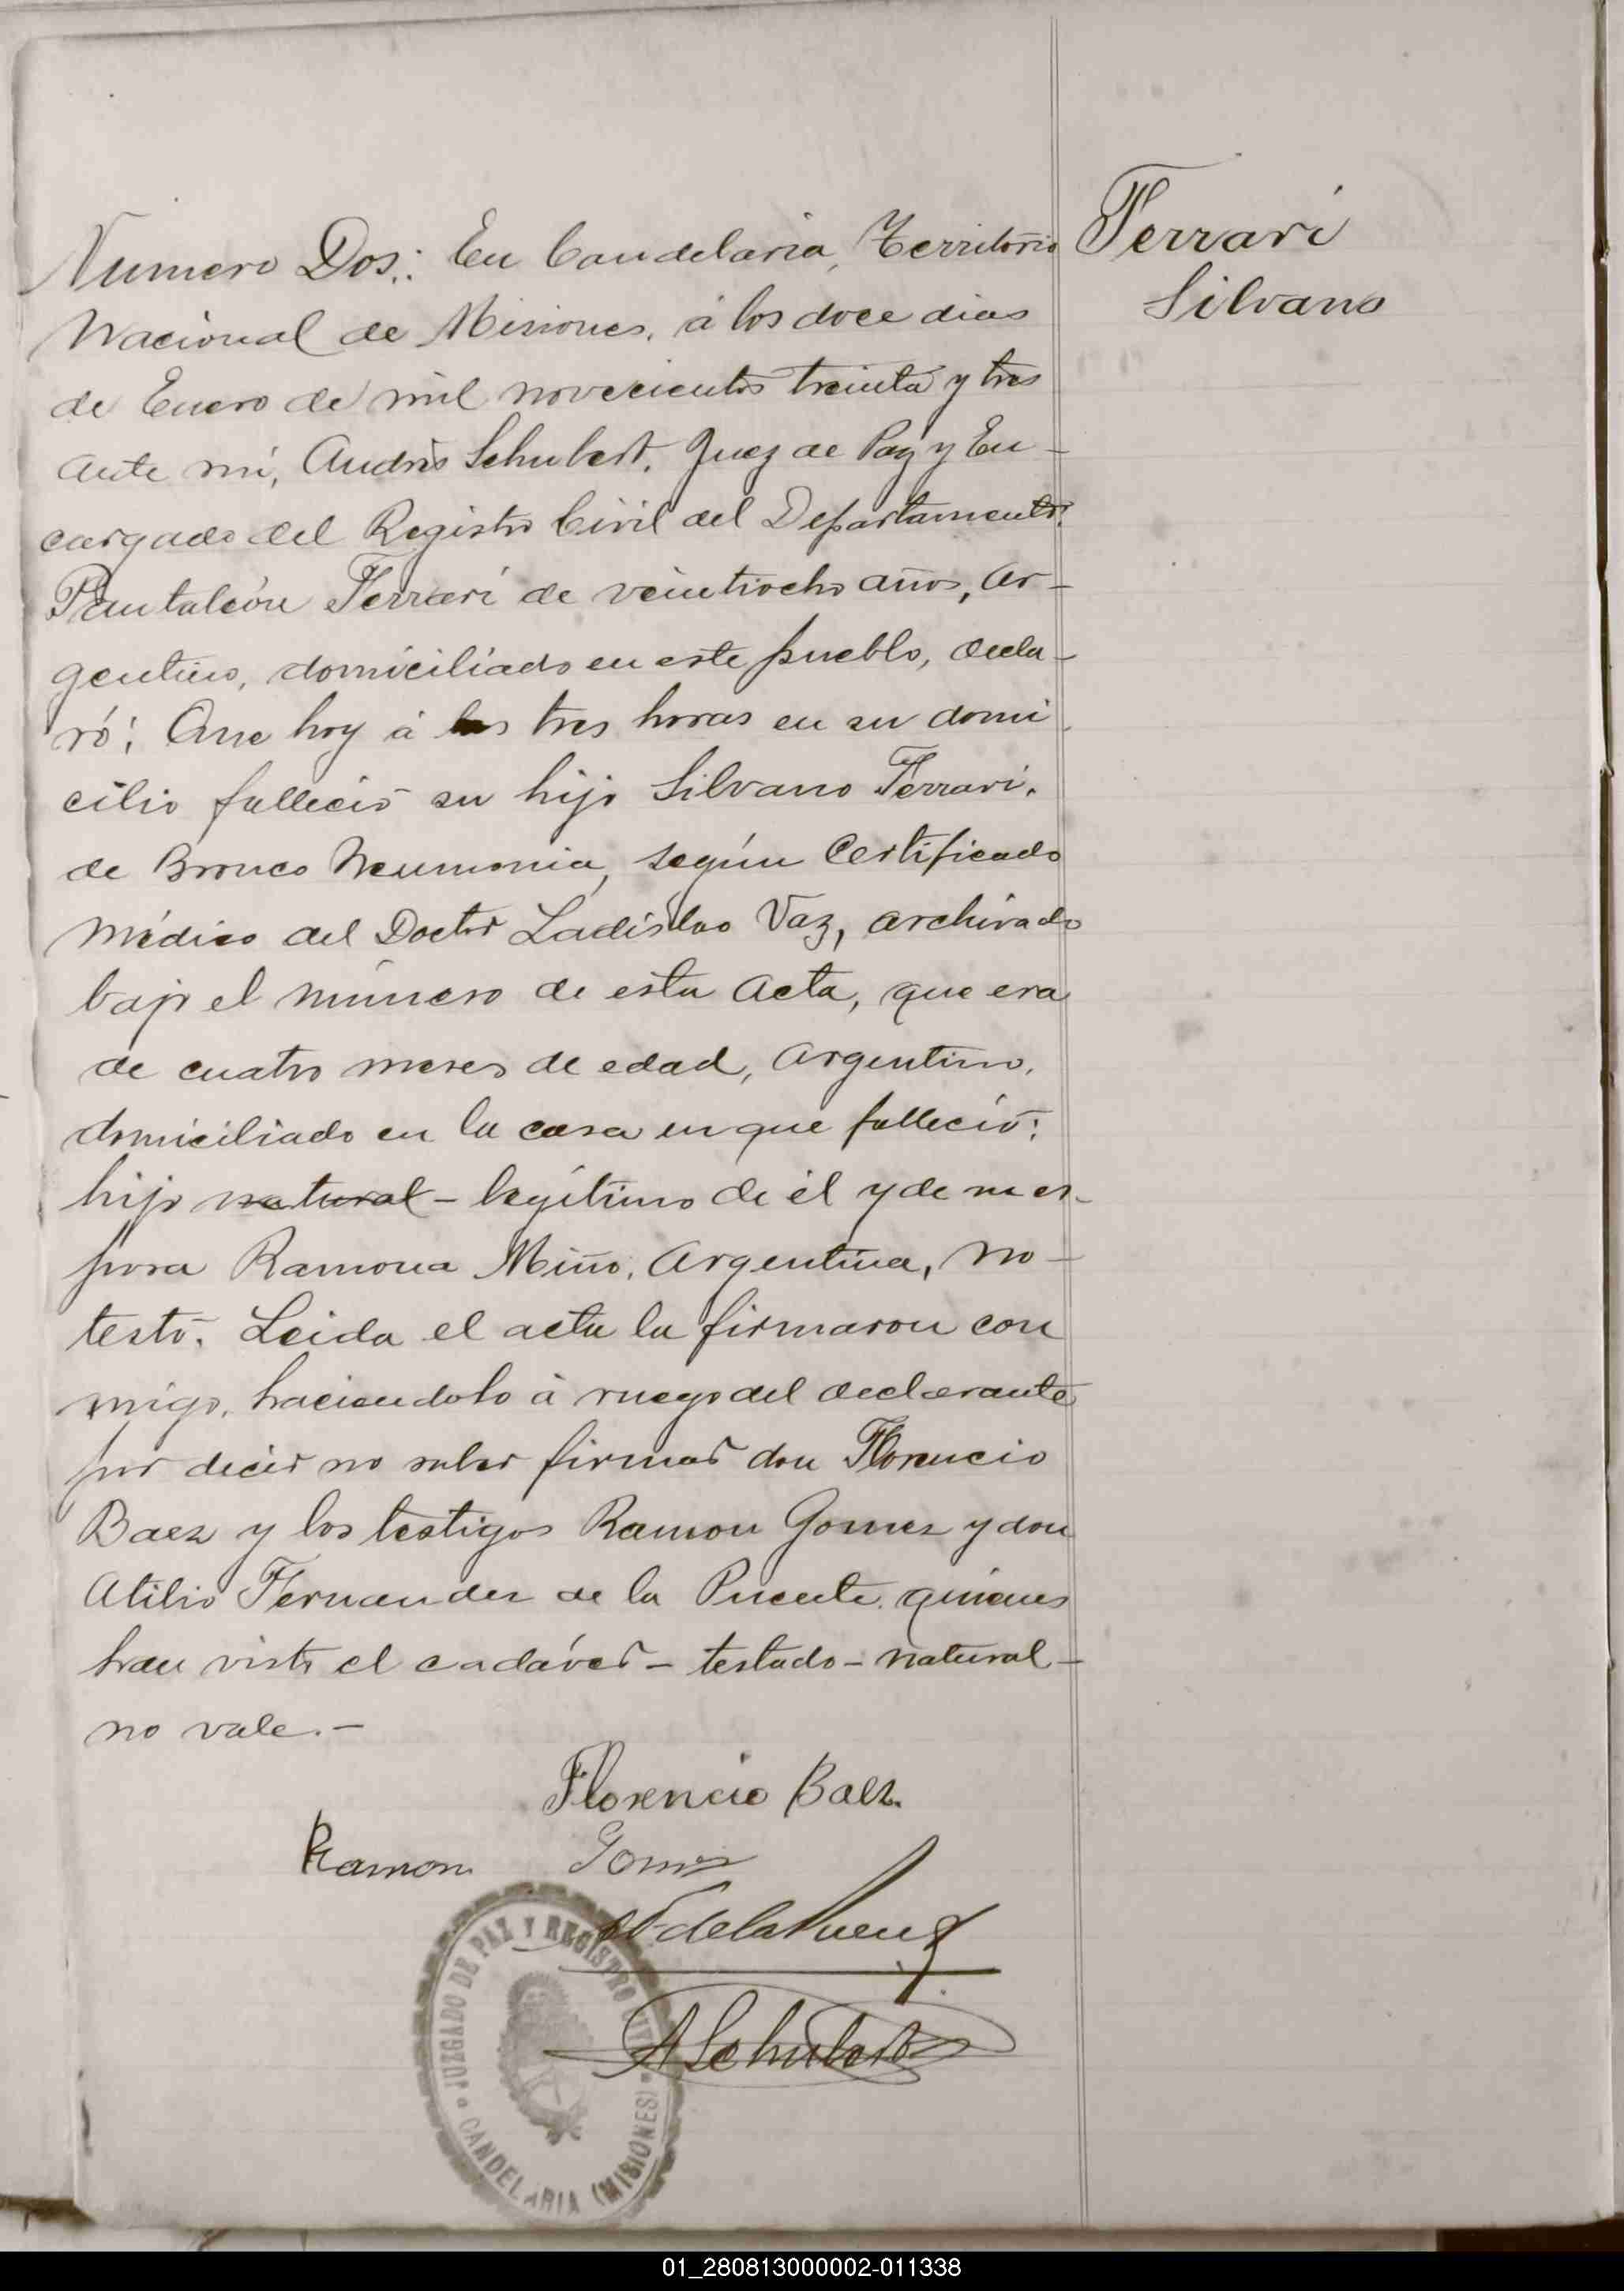 Numero Dos: En Candelaria, Territorio
Nacional de Misiones, á los doce dias
de Enero de mil novecientos treinta y tres
ante mi, Andrés Schubert, Juez de Paz y En-
cargado del Registro Civil del Departamento,
Pantaleón Ferrari de veintiocho años, ar-
gentino, domiciliado en este pueblo, decla-
ró: Que hoy á las tres horas en su domi
cilio falleció su hijo Silvano Ferrari,
de Bronco Neumonia, según Certificado
Médico del Doctor Ladislao Vaz, archivado
bajo el número de esta Acta, que era
de cuatro meses de edad, Argentino,
domiciliado en la casa en que falleció:
hijo natural - legítimo de él y de su es-
posa Ramona Miño, Argentina, no-
testó. Leida el acta la firmaron con
migo, haciendolo á ruego del declarante
por decir no saber firmar don Florencio
Baez y los testigos Ramon Gomez y don
Atilio Fernandez de la Puente quienes
han visto el cadáver - testado - natural -
no vale. -
Ferrari
Silvano
Florencio Baez.
Ramon Gomez
AF de la Puente
A Schubert
JUZGADO DE PAZ Y REGISTRO CIVIL
CANDELARIA (MISIONES)
01_280813000002-011338